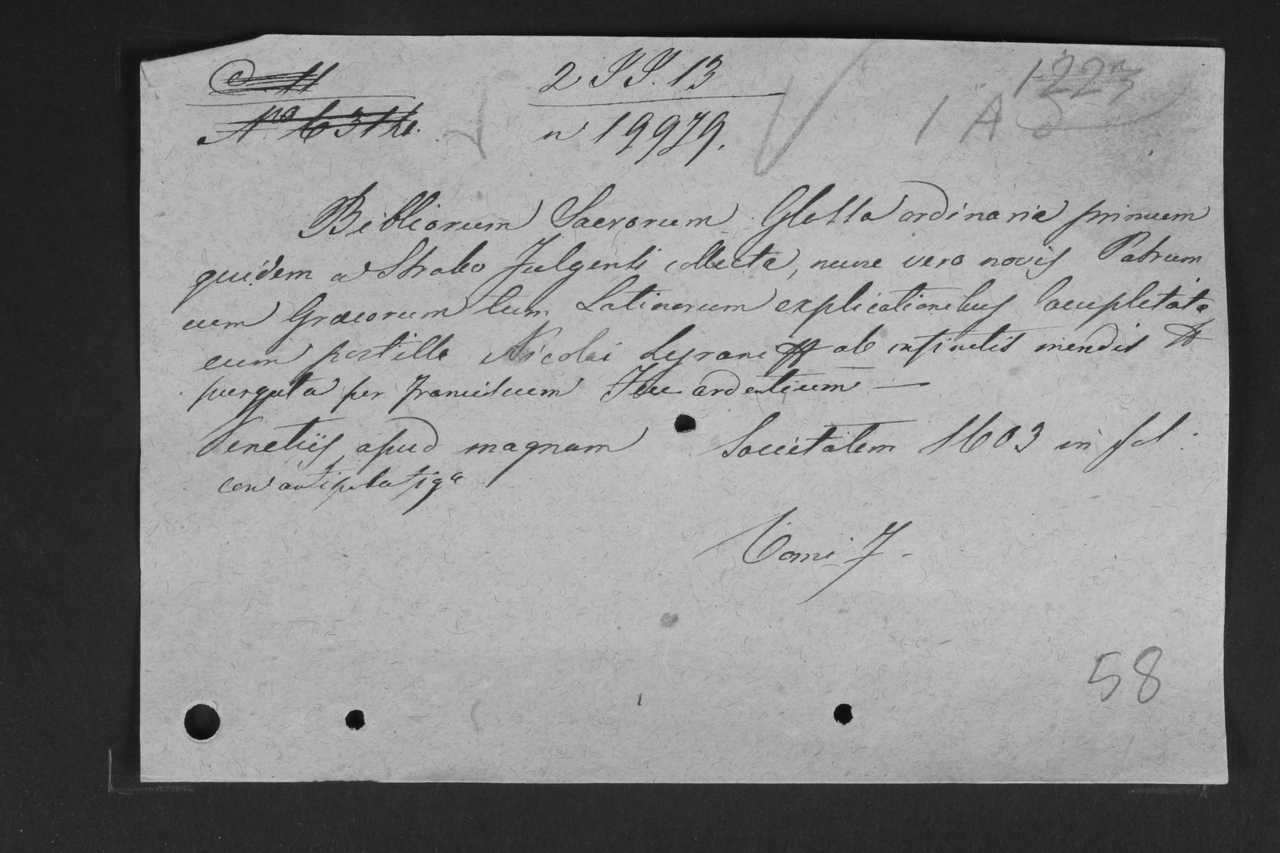 2 JJ. 13
n 19979.
1 A
Bibliorum Sacrorum Glossa ordinaria primum
quidem a Strabo Fulgenti collecta, nunc vero novis Patrum
cum Græcorum tum Latinorum explicationibus locupletata
cum postilla Nicolai Lyrani ab infinitis mendis
purgata per Franciscum Feu ardentium —
Venetiis, apud magnam Societatem 1603 in fol.
Tomi 7.
58